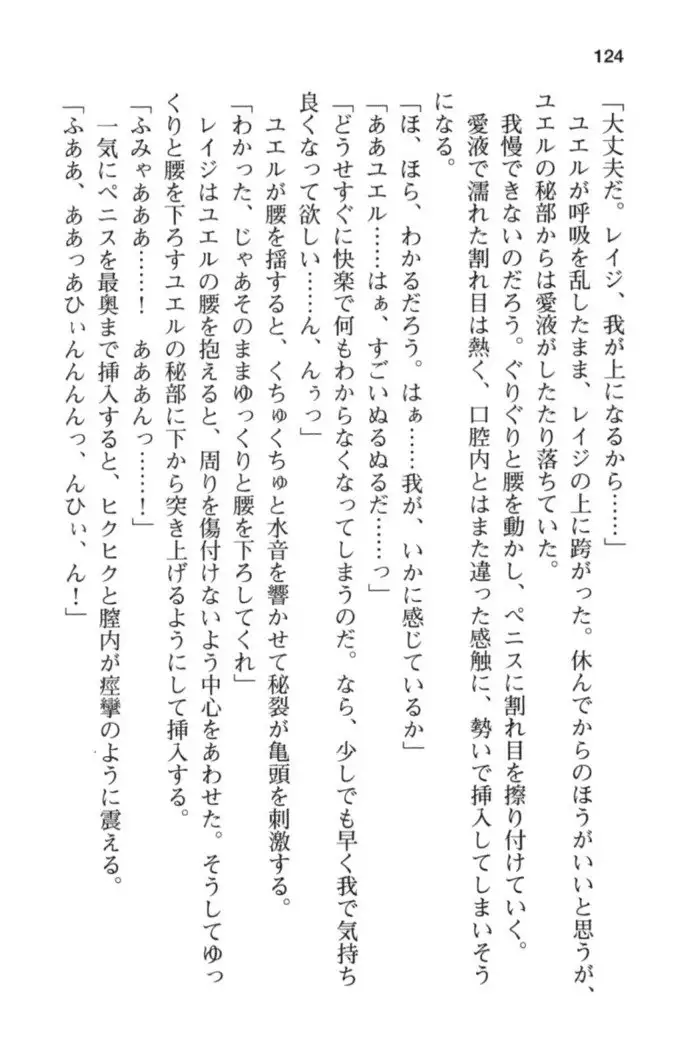 124
「大丈夫だ。レイジ、我が上になるから……」
ユエルが呼吸を乱したまま、レイジの上に跨がった。休んでからのほうがいいと思うが、
ユエルの秘部からは愛液がしたたり落ちていた。
我慢できないのだろう。ぐりぐりと腰を動かし、ペニスに割れ目を擦り付けていく。
愛液で濡れた割れ目は熱く、口腔内とはまた違った感触に、勢いで挿入してしまいそう
になる。
「ほ、ほら、わかるだろう。はぁ……我が、いかに感じているか」
「ああユエル……はぁ、すごいぬるぬるだ……っ」
「どうせすぐに快楽で何もわからなくなってしまうのだ。なら、少しでも早く我で気持ち
良くなって欲しい……ん、んぅっ」
ユエルが腰を揺すると、くちゅくちゅと水音を響かせて秘裂が亀頭を刺激する。
「わかった、じゃあそのままゆっくりと腰を下ろしてくれ」
レイジはユエルの腰を抱えると、周りを傷付けないよう中心をあわせた。そうしてゆっ
くりと腰を下ろすユエルの秘部に下から突き上げるようにして挿入する。
「ふみゃあああ……！　あああんっ……！」
一気にペニスを最奥まで挿入すると、ヒクヒクと膣内が痙攣のように震える。
「ふぁあ、ああっあひぃんんんんっ、んひぃ、ん！」